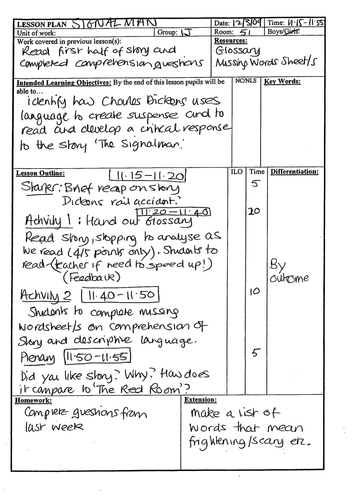 LESSON PLAN SIGNALMAN Date: 12/3/09 Time: 11.15-11.55
Unit of work: Group: 1J Room: 51 Boys/Girls:
Work covered in previous lesson(s): Resources:
Read first half of story and Glossary
completed comprehension questions Missing Words Sheet/s
Intended Learning Objectives: By the end of this lesson pupils will be NC/NLS Key Words:
able to…
identify how Charles Dickens uses
language to create suspense and to
read and develop a critical response
to the story 'The Signalman'.
Lesson Outline: 11.15-11.20 ILO Time Differentiation:
Starter: Brief recap on story 5
Dickens rail accident.
11.20-11.40
Activity 1: Hand out Glossary 20
Read Story, stopping to analyse as
we read (4/5 points only). Students to
read-(teacher if need to speed up!) By
(Feedback) outcome
Activity 2 11.40-11.50 10
Students to complete missing
wordsheet/s on comprehension of
story and descriptive language.
Plenary 11.50-11.55 5
Did you like story? Why? How does
it compare to 'The Red Room'?
Homework: Extension:
Complete questions from make a list of
last week words that mean
frightening/scary etc.